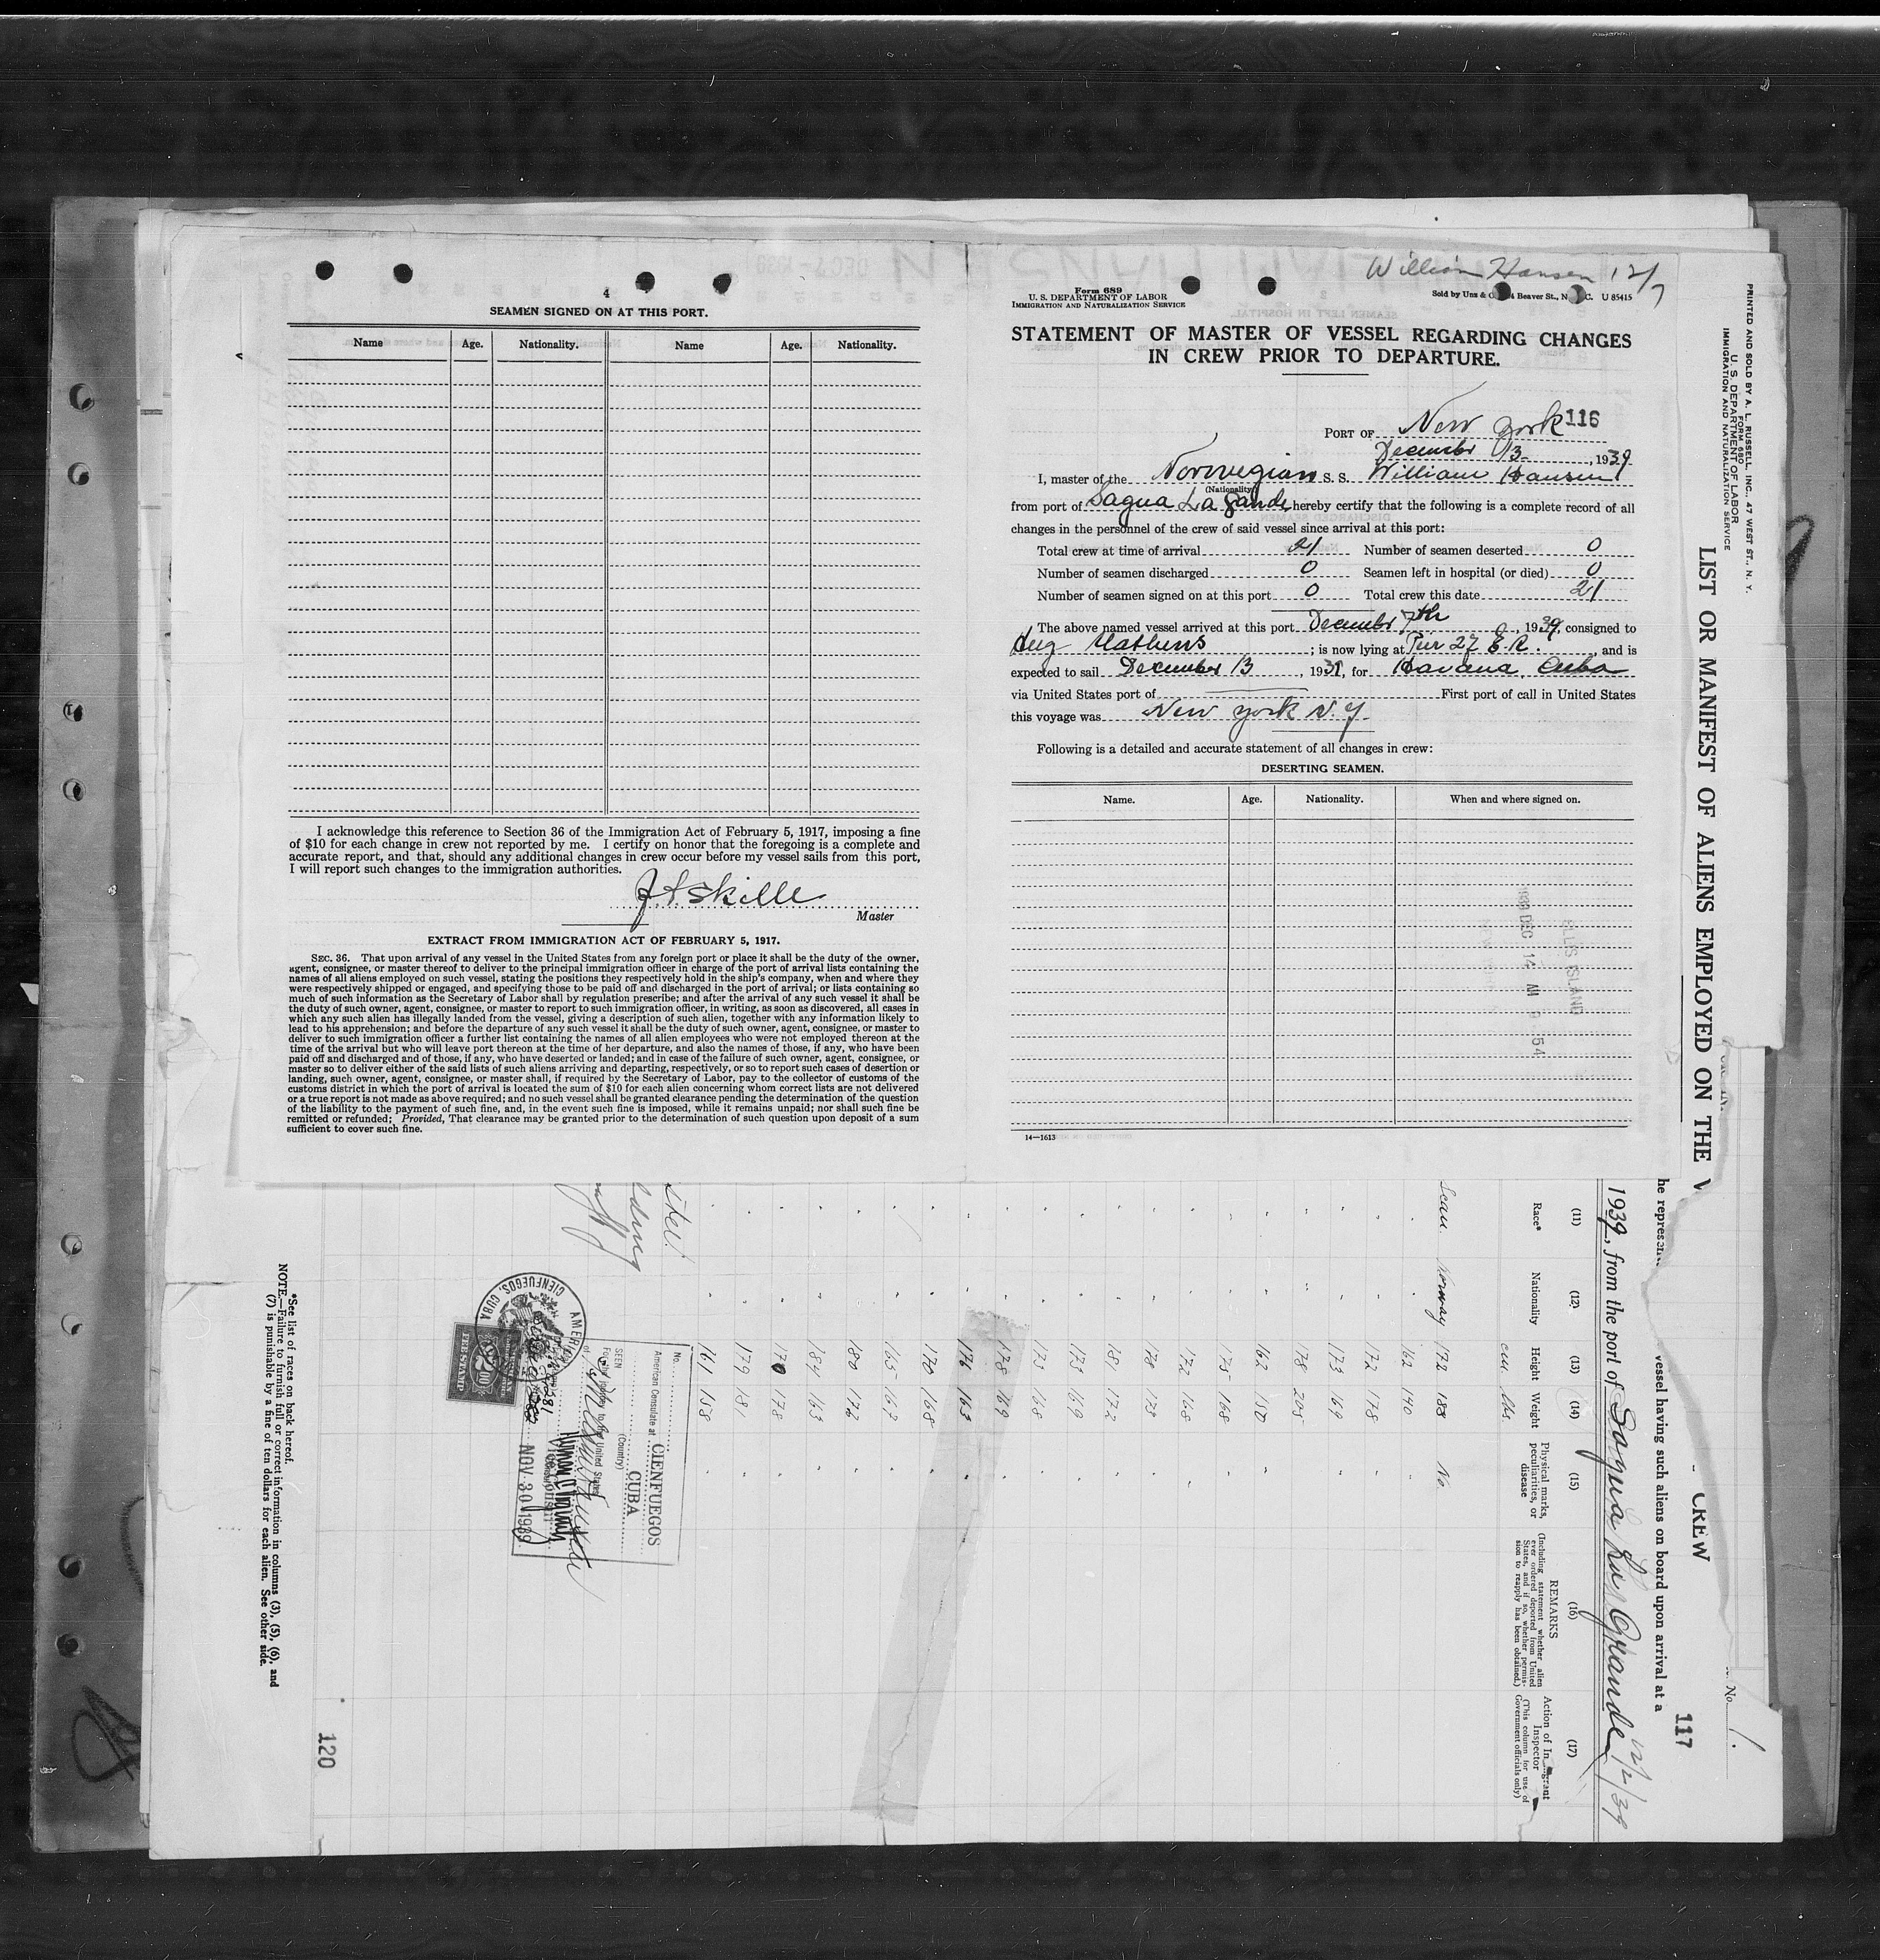 4
SEAMEN SIGNED ON AT THIS PORT.
Name Age. Nationality. Name Age. Nationality.
I acknowledge this reference to Section 36 of the Immigration Act of February 5, 1917, imposing a fine
of $10 for each change in crew not reported by me. I certify on honor that the foregoing is a complete and
accurate report, and that, should any additional changes in crew occur before my vessel sails from this port,
I will report such changes to the immigration authorities.
Skille
Master
EXTRACT FROM IMMIGRATION ACT OF FEBRUARY 5, 1917.
SEC. 36. That upon arrival of any vessel in the United States from any foreign port or place it shall be the duty of the owner,
agent, consignee, or master thereof to deliver to the principal immigration officer in charge of the port of arrival lists containing the
names of all aliens employed on such vessel, stating the positions they respectively hold in the ship's company, when and where they
were respectively shipped or engaged, and specifying those to be paid off and discharged in the port of arrival; or lists containing so
much of such information as the Secretary of Labor shall by regulation prescribe; and after the arrival of any such vessel it shall be
the duty of such owner, agent, consignee, or master to report to such immigration officer, in writing, as soon as discovered, all cases in
which any such alien has illegally landed from the vessel, giving a description of such alien, together with any information likely to
lead to his apprehension; and before the departure of any such vessel it shall be the duty of such owner, agent, consignee, or master to
deliver to such immigration officer a further list containing the names of all alien employees who were not employed thereon at the
time of the arrival but who will leave port thereon at the time of her departure, and also the names of those, if any, who have been
paid off and discharged and of those, if any, who have deserted or landed; and in case of the failure of such owner, agent, consignee, or
master so to deliver either of the said lists of such aliens arriving and departing, respectively, or so to report such cases of desertion or
landing, such owner, agent, consignee, or master shall, if required by the Secretary of Labor, pay to the collector of customs of the
customs district in which the port of arrival is located the sum of $10 for each alien concerning whom correct lists are not delivered
or a true report is not made as above required; and no such vessel shall be granted clearance pending the determination of the question
of the liability to the payment of such fine, and, in the event such fine is imposed, while it remains unpaid; nor shall such fine be
remitted or refunded; Provided, That clearance may be granted prior to the determination of such question upon deposit of a sum
sufficient to cover such fine.
William Hansen 12/7
Form 689
U. S. DEPARTMENT OF LABOR
IMMIGRATION AND NATURALIZATION SERVICE
Sold by Unz & Beaver St., N. C. U 85415
STATEMENT OF MASTER OF VESSEL REGARDING CHANGES
IN CREW PRIOR TO DEPARTURE.
PORT OF New York 116
December 13, 1939
I, master of the Norwegian S. S. William Hansen
(Nationality)
from port of Sagua La Gande, hereby certify that the following is a complete record of all
changes in the personnel of the crew of said vessel since arrival at this port:
Total crew at time of arrival 21 Number of seamen deserted 0
Number of seamen discharged 0 Seamen left in hospital (or died) 0
Number of seamen signed on at this port 0 Total crew this date 21
The above named vessel arrived at this port December 7th, 1939, consigned to
; is now lying at Pier 27 E.R., and is
expected to sail December 13, 1939, for Havana, Cuba
via United States port of First port of call in United States
this voyage was New York N.Y.
Following is a detailed and accurate statement of all changes in crew:
DESERTING SEAMEN.
Name. Age. Nationality. When and where signed on.
1939 DEC 14 AM 9 54
ELLIS ISLAND
14—1613
PRINTED AND SOLD BY A. L. RUSSELL, INC., 47 WEST ST., N. Y.
FORM 680
U. S. DEPARTMENT OF LABOR
IMMIGRATION AND NATURALIZATION SERVICE
LIST OR MANIFEST OF ALIENS EMPLOYED ON THE V CREW
No. 1
117
vessel having such aliens on board upon arrival at a
1939, from the port of Sagua La Grande 12/2/39
(11) (12) (13) (14) (15) (16) (17)
Race* Nationality Height Weight Physical marks, peculiarities, or disease
REMARKS
(Including statement whether alien ever ordered deported from United States, and if so, whether permission to reapply has been obtained.)
Action of Inspector
(This column for use of Government officials only)
cm. lbs.
Scan. Norway 172 188 No
162 140
172 178
173 169
178 205
162 150
175 168
172 168
178 173
181 172
173 169
171 168
178 169
176 163
170 168
165 167
180 172
184 163
170 178
179 181
161 158
No.
American Consulate at CIENFUEGOS
CUBA
(Country)
SEEN
For the journey to the United States
NOV 30 1939
AMERI CIENFUEGOS, CUBA
FEE STAMP
*See list of races on back hereof.
NOTE.—Failure to furnish full or correct information in columns (3), (5), (6), and
(7) is punishable by a fine of ten dollars for each alien. See other side.
120